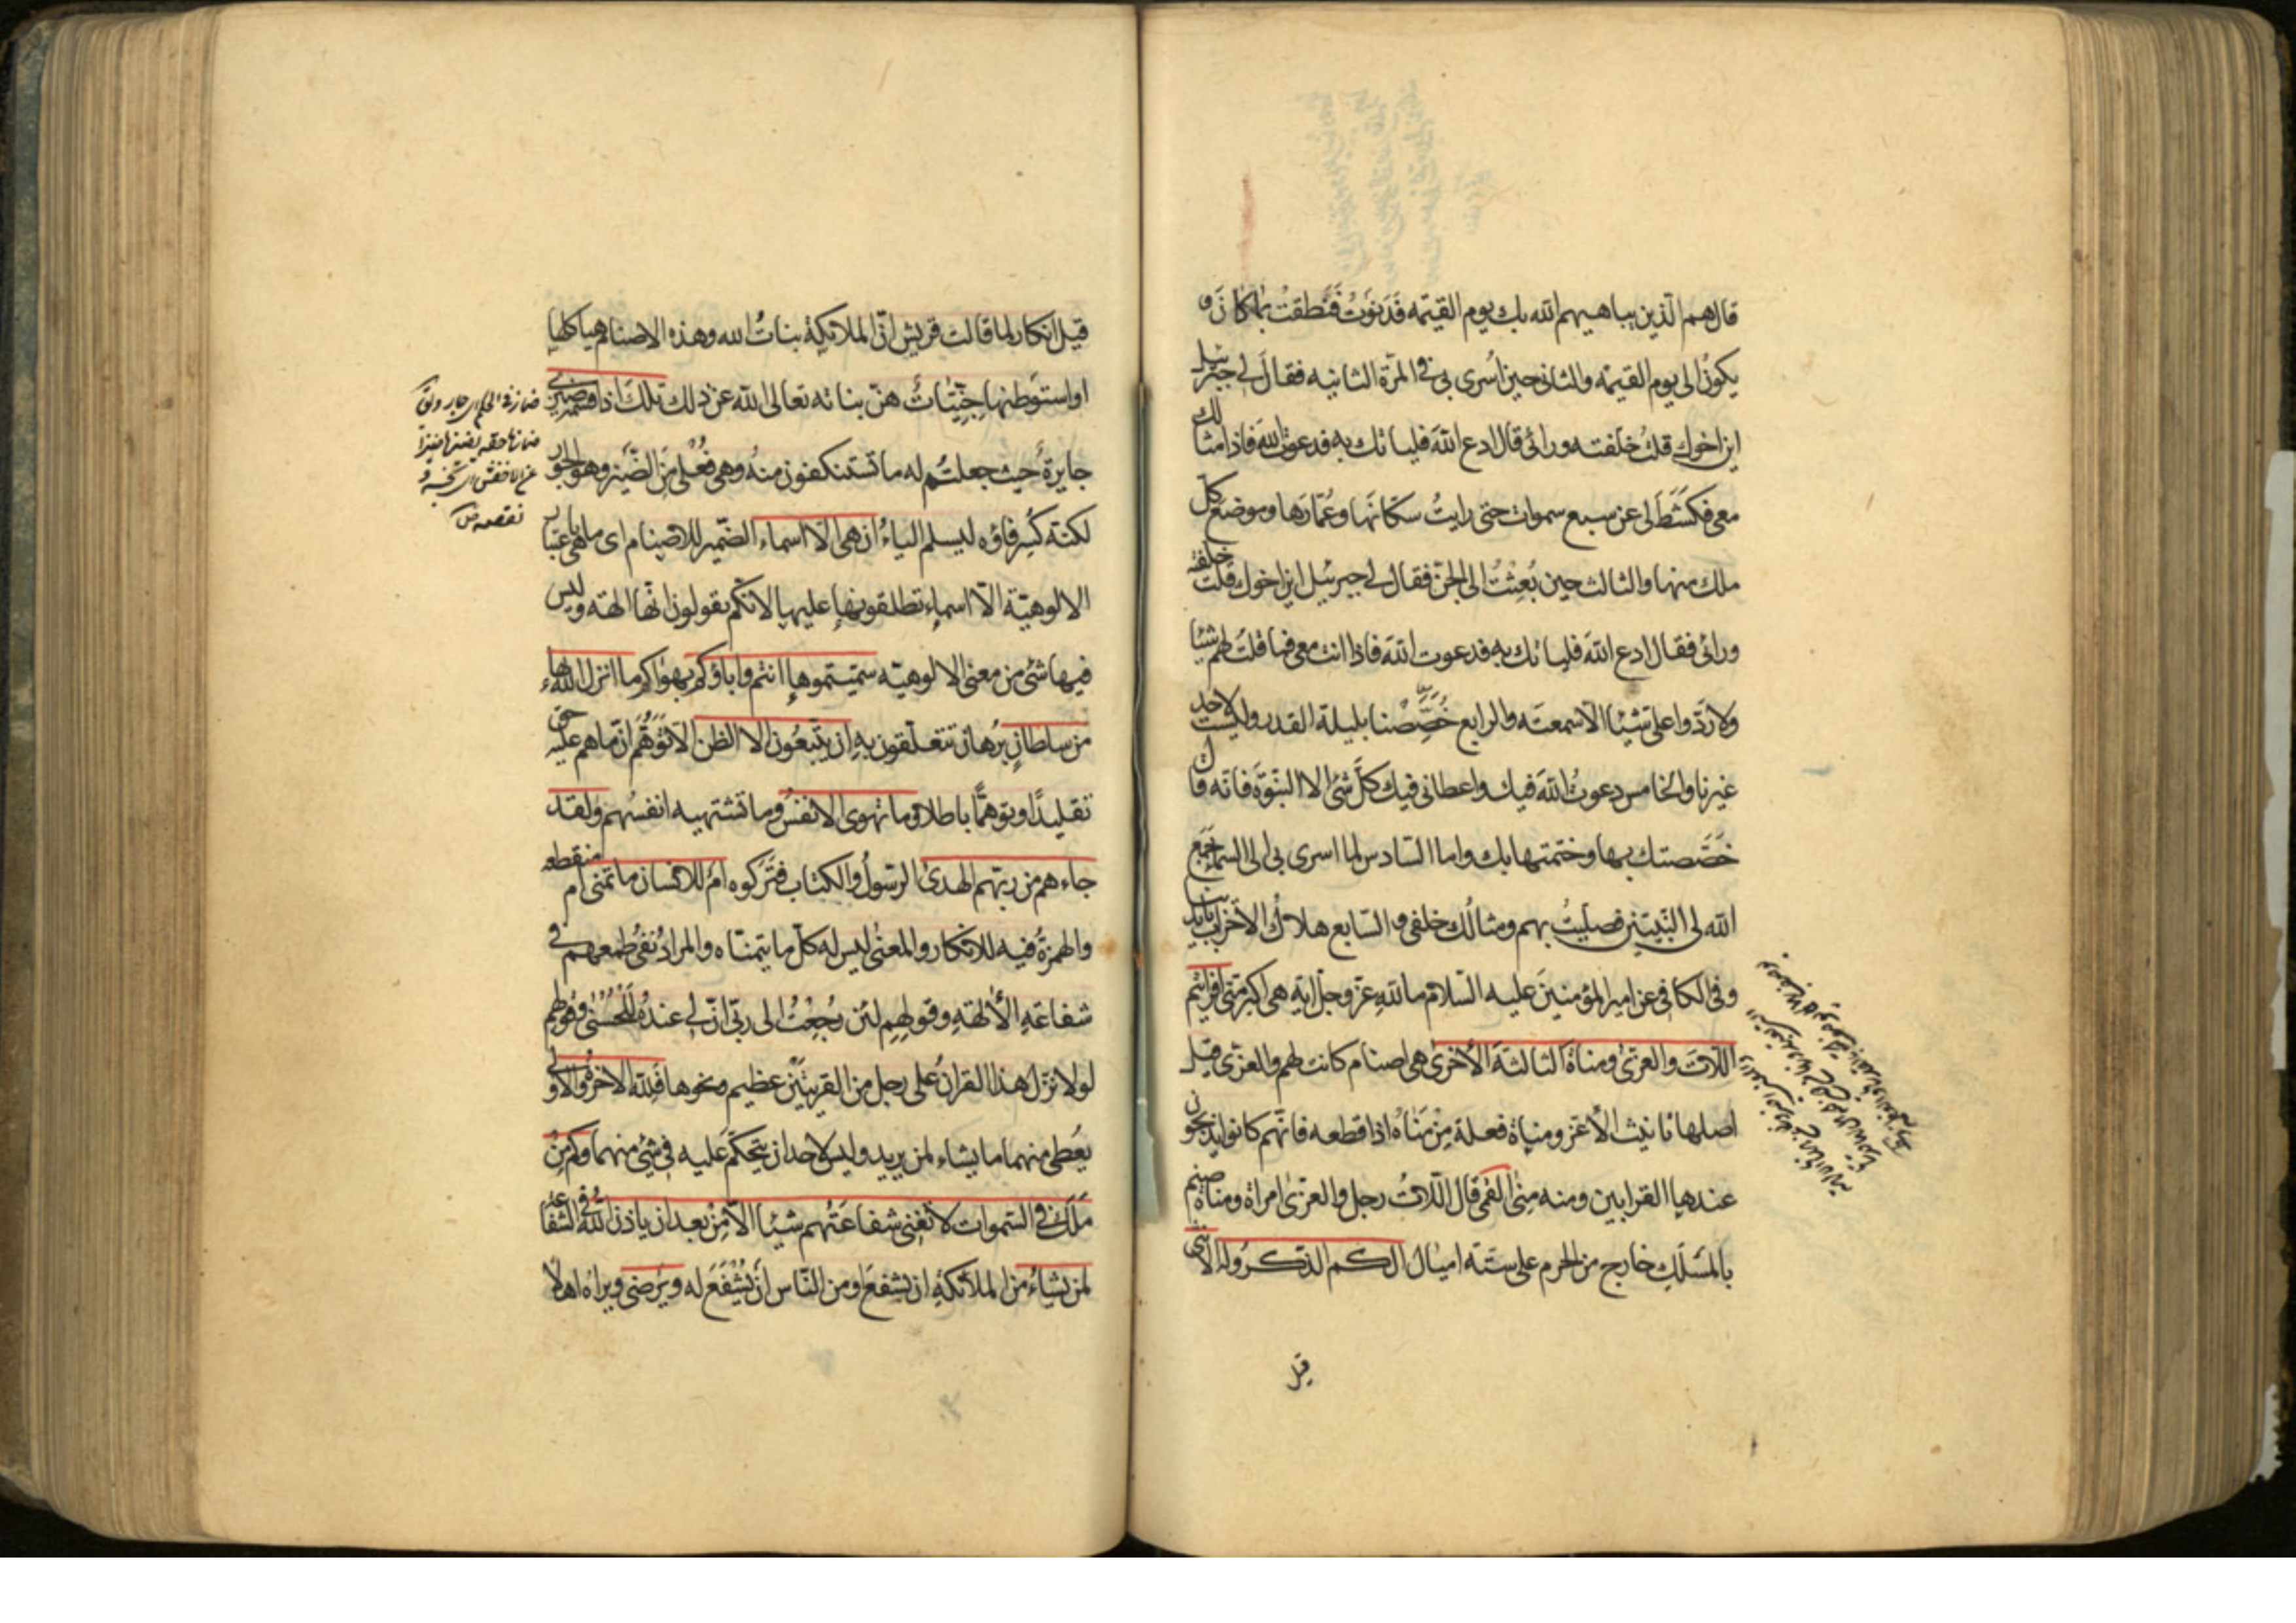 قال هم الّذين يباهيهم الله بك يوم القيٰمه فَدَنَوتُ فَنَطقتُ بما كانَ و
يكونُ الى يوم القيٰمه والثانى حين اُسرى بى فى المرّة الثانيه فقالَ لى جبرئيل
اين اخوك قلتُ خلّفته ورائى قال ادع اللهَ فلياتك به فدعوت اللهَ فاذا مثالك
معى فكَشَطَ لى عن سبع سموات حتى رايتُ سكّانَها وعُمّارَها وموضع كلّ
ملك منها والثالث حين بُعِثْتُ الى الجنّ فقال لى جبرئيل اين اخوك قلت خلّفته
ورائى فقال ادع اللهَ فلياتك به فدعوت اللهَ فاذا انت معى فما قلتَ لهم شيئا
ولا ردّوا على شيئا الّا سمعتَه والرابع خُصِّصْنا بليلة القدر وليست لاحد
غيرنا والخامس دعوتُ اللهَ فيك واعطانى فيك كلَّ شئ الا النبّوّة فانه قال
خَصَصتك بها وختمتها بك واما السّادس لما اسرى بى الى السماء جَمَع
الله لى النّبيّين فصلّيتُ بهم ومثالُك خلفى والسّابع هلاك الاحزاب بايدينا
وفى الكافى عن امير المؤمنينَ عليه السّلام ما للهِ عزّ وجلّ اية هى اكبر منّى افرايتم
اللّاتَ والعزّى ومناةَ الثالثةَ الاُخرى هى اصنام كانت لهم والعزّى قيل
اصلها تانيث الأعز ومناة فعلة مِنْ مَنَاهُ اذا قطعه فانّهم كانوا يذبحون
عندها القرابين ومنه مِنىٰ القمّى قال اللّاتُ رجل والعزّىٰ امراة ومناة صنم
بالمسَلّكِ خارج من الحرم على ستّة اميال الكم الذكر وله الانثى
قيل
قيل انكار لما قالت قريش انّ الملائكة بناتُ الله وهذه الاصنام هياكلها
او استَوطنها جِنّيّاتٌ هنّ بناته تعالى الله عن ذلك تلكَ اذا قسمة ضيزى
جايرة حيث جعلتُم له ما تستنكفون منهُ وهى فُعْلى من الضَّيز وهو الجور
لكنّه كُسِر فاؤه ليسلم الياءُ ان هى الّا اسماء الضّمير للاصنام اى ما هى باعتبار
الالوهيّة الّا اسماء تطلقونها عليها لانّكم تقولون انّها الهة وليس
فيها شئ من معنى الالوهيّه سمّيتموها انتم واباؤكم بهواكم ما انزل اللهُ بها
من سلطانٍ برهان تتعلّقون به ان يتّبعُون الّا الظن الّا تَوَهُّمَ انّ ما هم عليه حق
تقليدًا وتوهمًّا باطلا وما تهوى الانفسُ وما تشتهيه انفسُهم ولقد
جاءهم من ربّهم الهدىٰ الرسولُ والكتاب فتَرَكوه ام للانسان ما تمنّى ام منقطعه
والهمزةُ فيه للانكار والمعنٰى ليس له كلّ ما يتمنّاه والمرادُ نفىُ طمعِهم فى
شفاعةِ الألهةِ وقولهِم لئن رُجِعْتُ الى ربّى انّ لى عندهُ للْحُسْنٰى وقولهم
لولا نزّل هٰذا القرانُ على رجل من القريتَيْن عظيم ونحوها فلِلّه الاخرةُ والاولى
يعُطى منهما ما يشاء لمن يريد وليس لاحد ان يتحكّم عليه فى شئ منهما وكم مِنْ
مَلَك فى السّموات لا تغنى شفاعَتُهم شيئا الّا مِنْ بعد ان ياذن اللهُ فى الشفاعة
لمن يشاءُ من الملائكةِ ان يشفعَ او من النّاس ان يُشْفَعَ له ويرَضى ويراهُ اهلًا
ضاز فى الحكم اى جار
ضازه حقه يضيزه ضيزاً
عن الاخفش اى بخسه و
نقصه ص